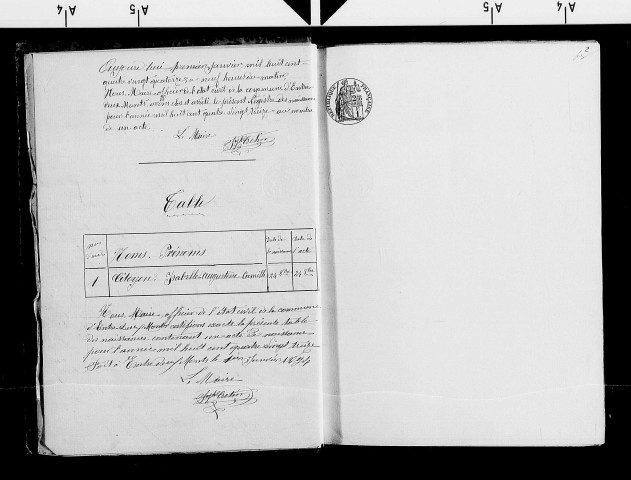 Aujourd'hui premier Janvier mil huit cent
quatre vingt quatorze à neuf heures du matin
Nous, Maire officier de l'état civil de la commune d'Entre
deux Monts avons clos et arrêté le présent Registre des naissances
pour l'année mil huit cent quatre vingt treize au nombre
de un acte.
Le Maire
Table
Nos Noms - Prénoms Date de naissance Date de l'acte
1 Citoyen Isabelle Augustine Camille 24 8bre 24 8bre
Nous, Maire, officier de l'état civil de la commune
d'Entre deux Monts certifions exacte la présente table
des naissances contenant un acte de naissance
pour l'année mil huit cent quatre vingt treize
Fait à Entre deux Monts le 1er Janvier 1894
Le Maire
RÉPUBLIQUE FRANÇAISE
2
A 4
A 5
A 5
A 4